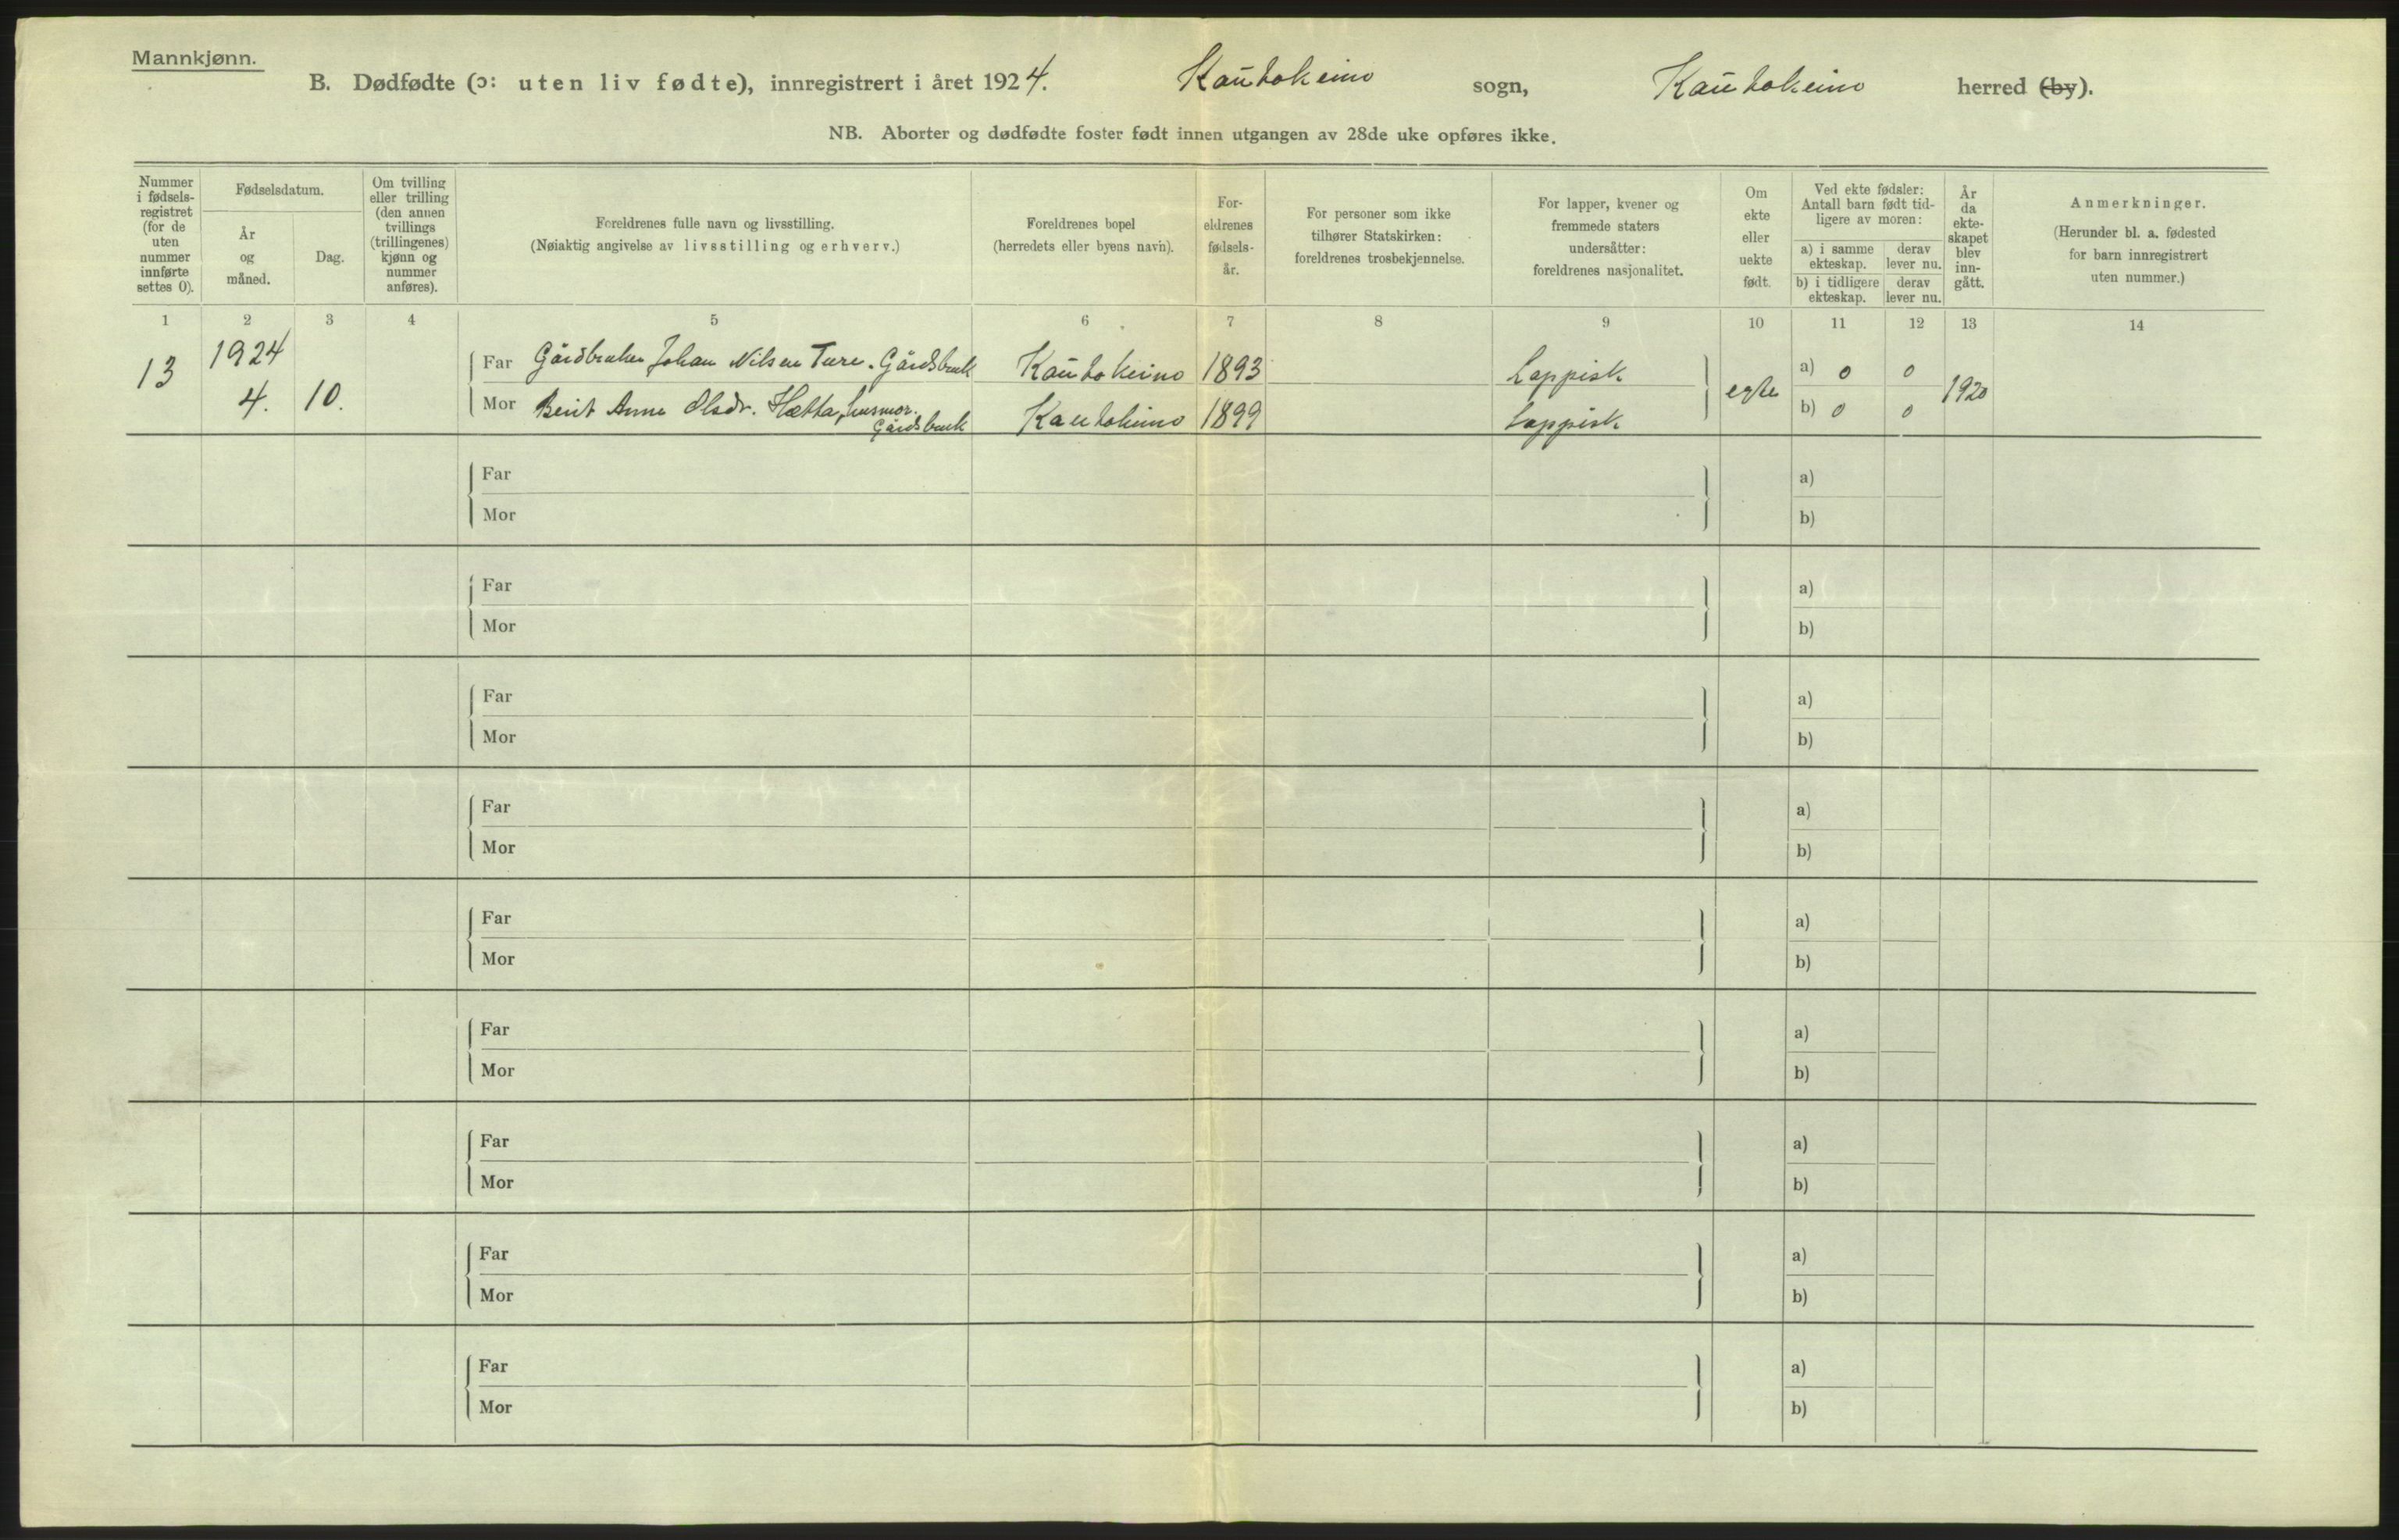 Mannkjønn.
B. Dødfødte (ɔ: uten liv fødte), innregistrert i året 1924. Kautokeino sogn, Kautokeino herred (by).
NB. Aborter og dødfødte foster født innen utgangen av 28de uke opføres ikke.
Nummer i fødsels-registret (for de uten nummer innførte settes 0).
Fødselsdatum.
År og måned.
Dag.
Om tvilling eller trilling (den annen tvillings (trillingenes) kjønn og nummer anføres).
Foreldrenes fulle navn og livsstilling.
(Nøiaktig angivelse av livsstilling og erhverv.)
Foreldrenes bopel
(herredets eller byens navn).
For-eldrenes fødsels-år.
For personer som ikke tilhører Statskirken: foreldrenes trosbekjennelse.
For lapper, kvener og fremmede staters undersåtter: foreldrenes nasjonalitet.
Om ekte eller uekte født.
Ved ekte fødsler: Antall barn født tid-ligere av moren:
a) i samme ekteskap.
derav lever nu.
b) i tidligere ekteskap.
derav lever nu.
År da ekte-skapet blev inn-gått.
Anmerkninger.
(Herunder bl. a. fødested for barn innregistrert uten nummer.)
1 2 3 4 5 6 7 8 9 10 11 12 13 14
13 1924 4. 10.
Far Gårdbruker Johan Nilsen Ture. Gårdsbruk Kautokeino 1893 Lappisk egte a) 0 0 1920
Mor Berit Anne Olsdr. Hætta, husmor. Gårdsbruk Kautokeino 1899 Lappisk b) 0 0
Far a)
Mor b)
Far a)
Mor b)
Far a)
Mor b)
Far a)
Mor b)
Far a)
Mor b)
Far a)
Mor b)
Far a)
Mor b)
Far a)
Mor b)
Far a)
Mor b)